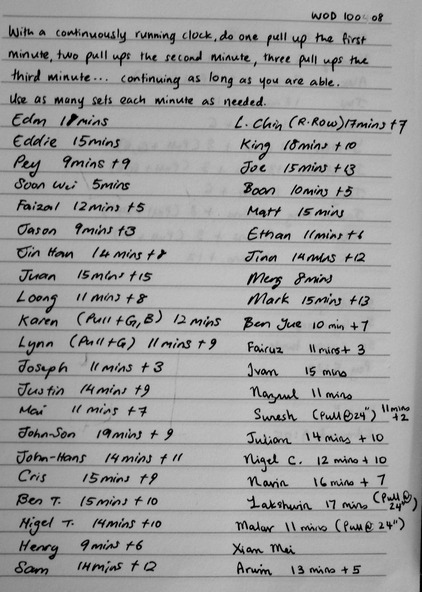 WOD 100 08
With a continuously running clock, do one pull up the first
minute, two pull ups the second minute, three pull ups the
third minute... continuing as long as you are able.
Use as many sets each minute as needed.
Edm 18mins
Eddie 15mins
Pey 9mins +9
Soon Wei 5mins
Faizal 12mins +5
Jason 9mins +3
Jin Han 14mins +8
Juan 15mins +15
Loong 11mins +8
Karen (Pull+G, B) 12 mins
Lynn (Pull+G) 11mins +9
Joseph 11mins +3
Justin 14mins +9
Mai 11mins +7
John-Son 19mins + 9
John-Hans 14mins + 11
Cris 15mins +9
Ben T. 15mins +10
Nigel T. 14mins +10
Henry 9mins +6
Sam 14mins +12
L. Chin (R.Row) 17mins +7
King 18mins +10
Joe 15mins +13
Boon 10mins +5
Matt 15 mins
Ethan 11mins +6
Jinn 14mins +12
Merg 8mins
Mark 15mins +13
Ben Jue 10 min +7
Fairuz 11mins + 3
Ivan 15 mins
Nazrul 11 mins
Suresh (Pull@24") 11mins
+2
Julian 14 mins + 10
Nigel C. 12 mins + 10
Navin 16 mins + 7
Lakshwin 17 mins (Pull@
24")
Malar 11 mins (Pull@ 24")
Xian Mei
Arwin 13 mins + 5